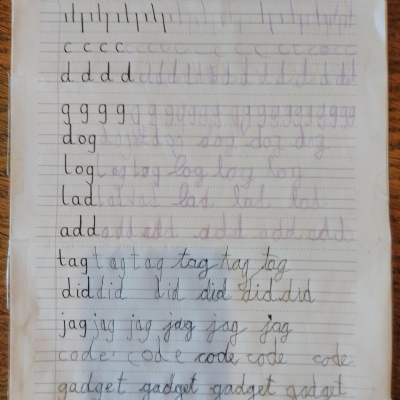 c c c c c c c c c c c c c c c
d d d d d d d d d d d d d d d
g g g g g g g g g g g g g g g g
dog dog dog dog dog dog
log log log log log log
lad lad lad lad lad lad
add add add add add add
tag tag tag tag tag tag
did did did did did did
jag jag jag jag jag jag
code code code code code
gadget gadget gadget gadget